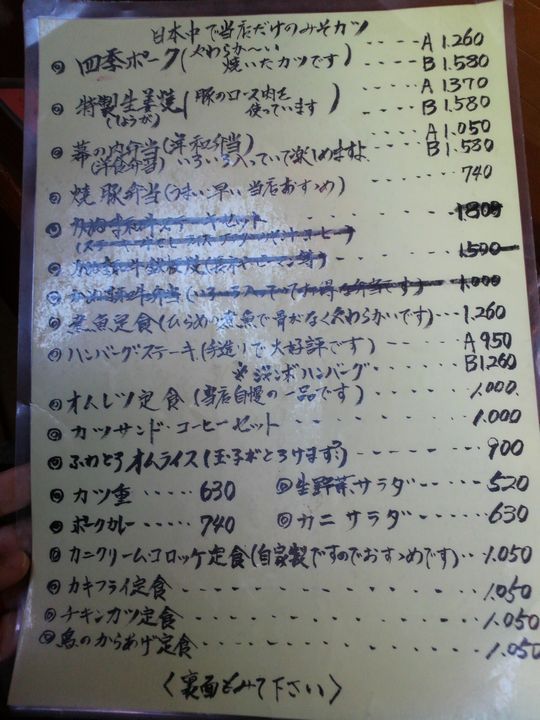 日本中で当店だけのみそカツ
◎ 四季ポーク(やわらか〜い ····· A 1.260
焼いたカツです ····· B 1.580
◎ 特製生姜焼(豚のロース肉を A 1370
(しょうが) 使っています) B 1.580
A 1.050
◎ 幕の内弁当(洋和弁当) B 1.580
(洋食弁当) いろいろ入っていて楽しめますよ
◎ 焼豚弁当(うまい早い当店おすゝめ) 740
1.800
1.500
1.000
◎ 煮魚定食(ひらめの煮魚で骨がなく柔わらかいです) ··· 1.260
◎ ハンバーグステーキ(手造りで大好評です) A 950
※ジャンボハンバーグ B1.260
◎ オムレツ定食(当店自慢の一品です) ···· 1.000
◎ カツサンド・コーヒーセット 1.000
◎ ふわとろオムライス(玉子がとろけます?) 900
◎ カツ重 ····· 630 ◎ 生野菜サラダ ···· 520
◎ ポークカレー ···· 740 ◎ カニサラダ 630
◎ カニクリームコロッケ定食(自家製ですのでおすゝめです) ·· 1.050
◎ カキフライ定食 1.050
◎ チキンカツ定食 1.050
◎ 鳥のからあげ定食 1.050
〈裏面もみて下さい〉